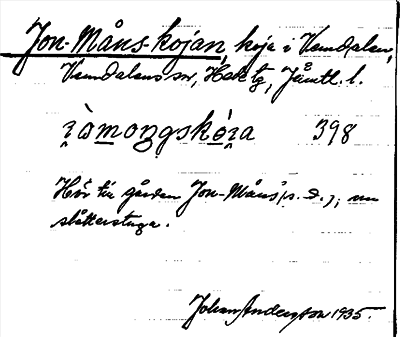 Jon-Måns-kojan, koja i Vemdalen,
Vemdalens sn, Hede tg, Jämtl. l.
i̯òmoŋskói̯a 398
Hör till gården Jon-Måns (s. d.); nu
slåtterstuga.
Johan Anderson 1935.